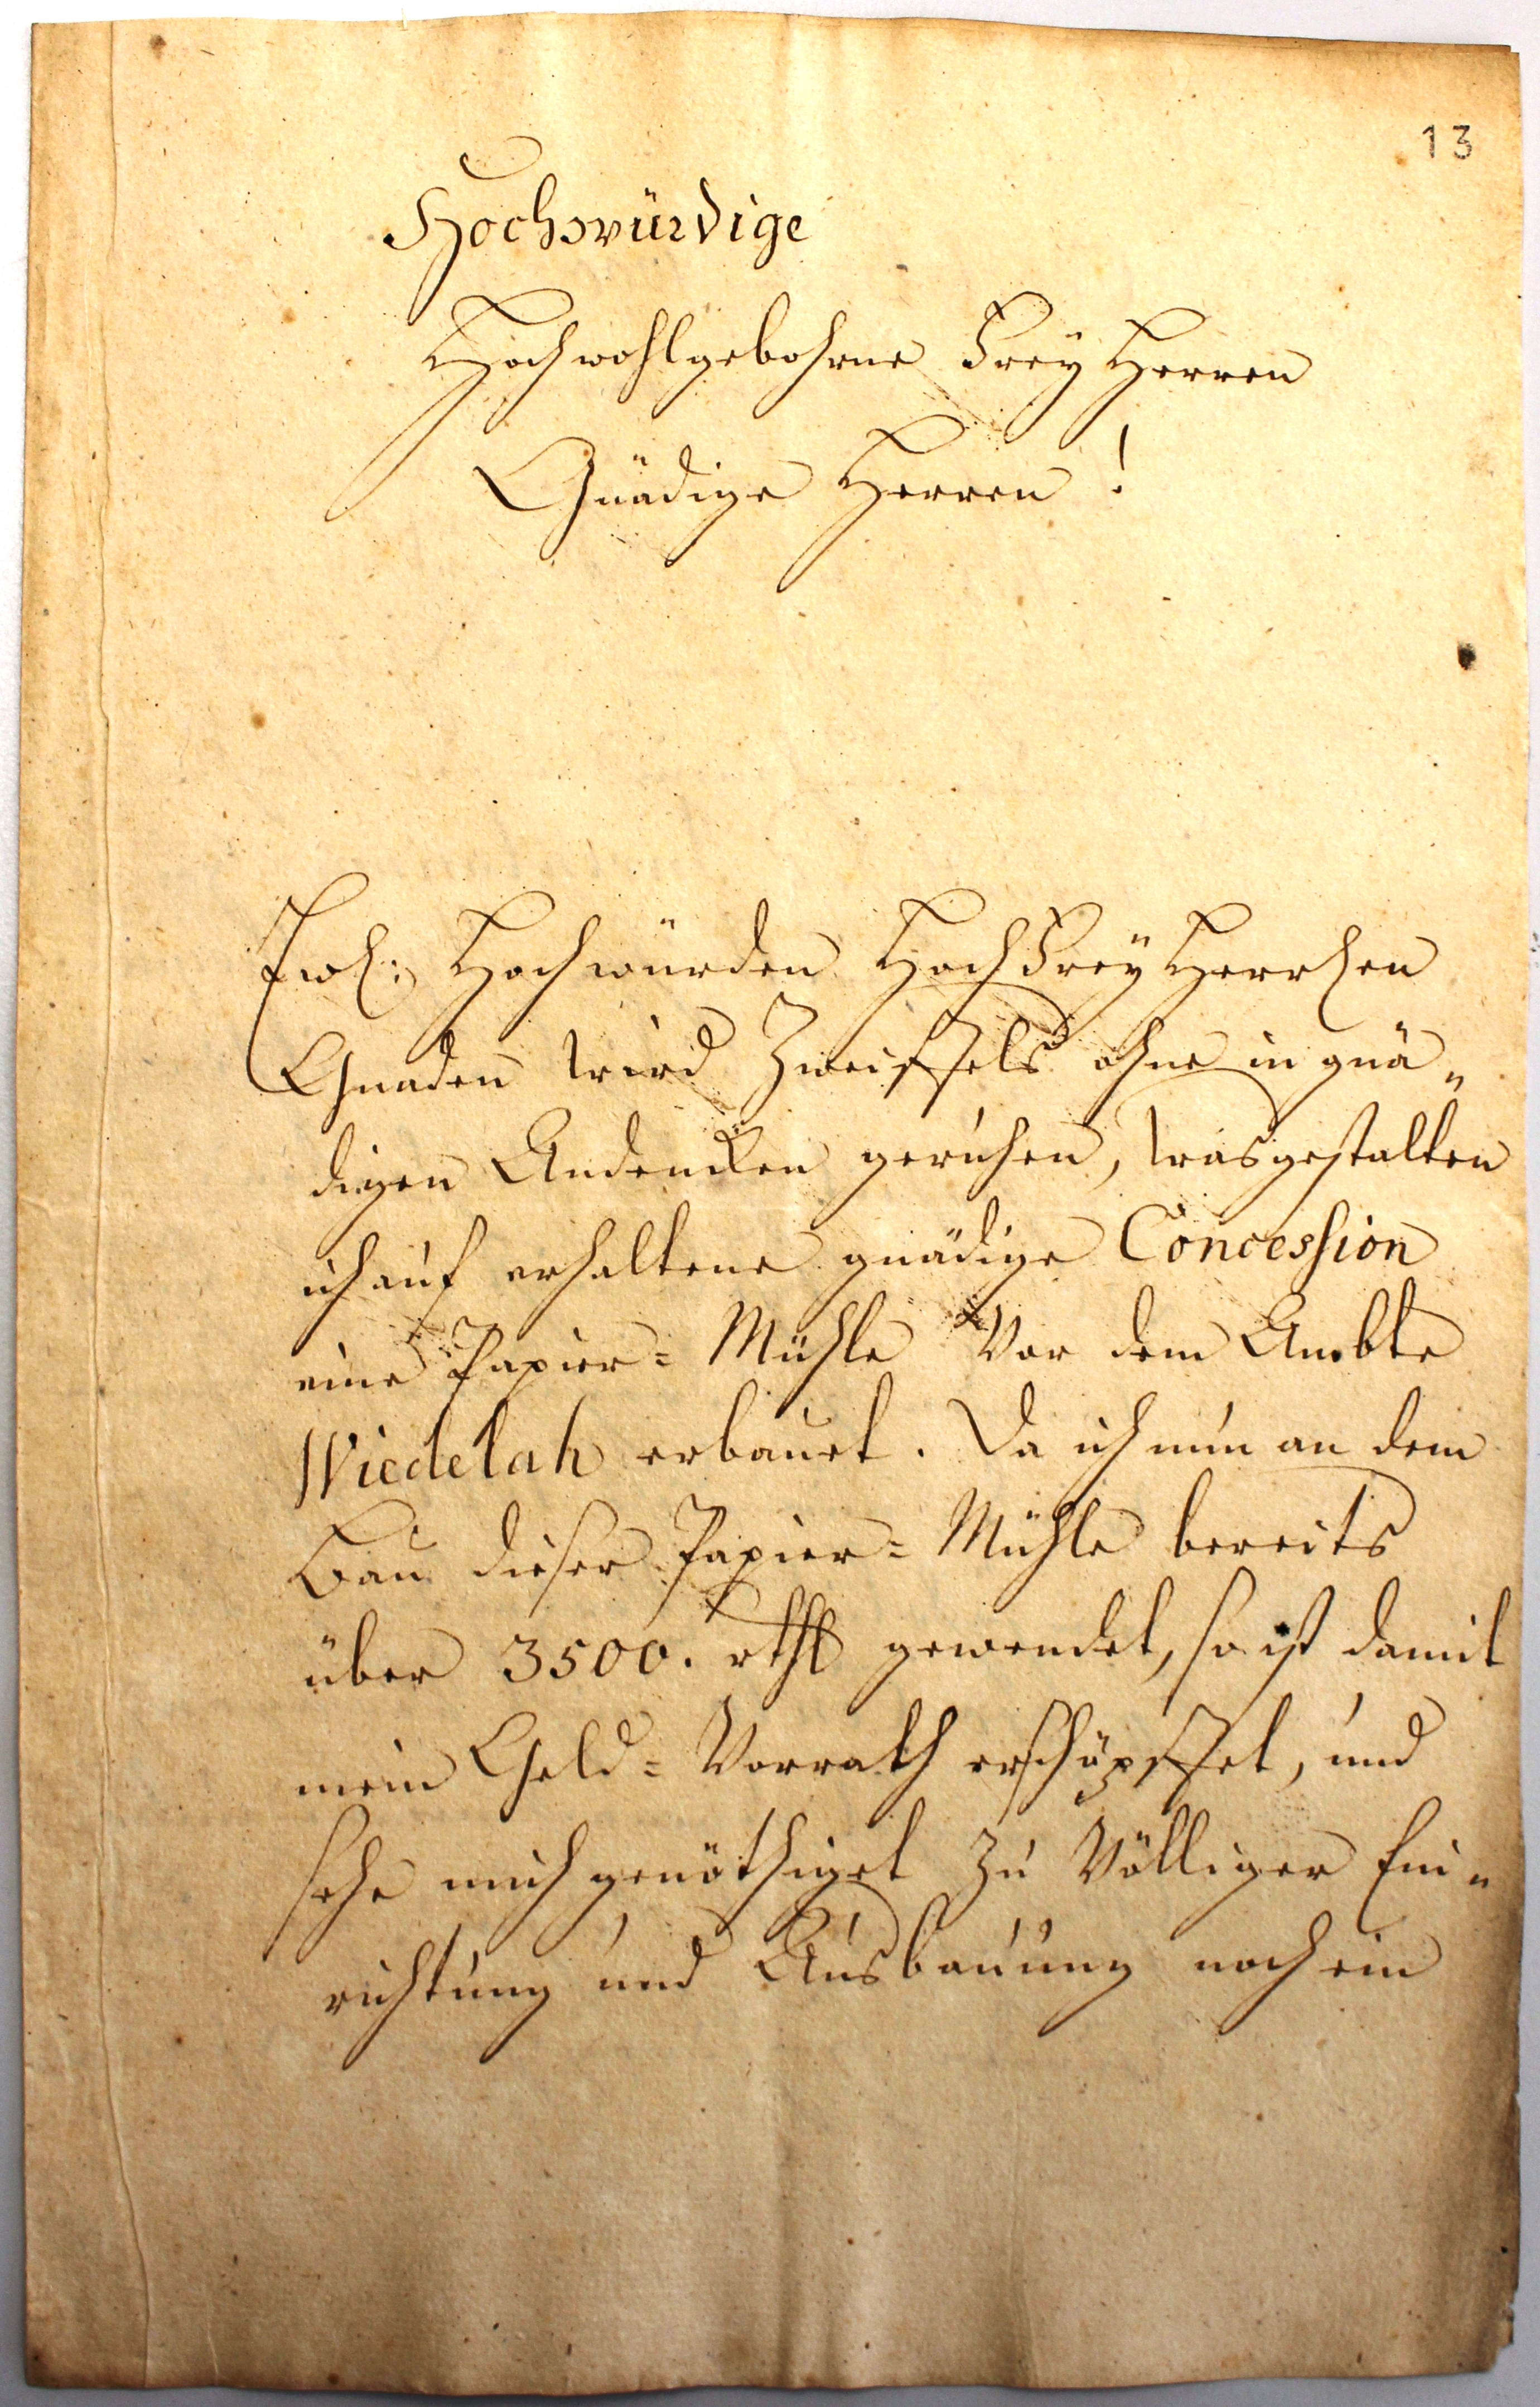 13
Hochwürdige
Hochwohlgebohrne Frey Herren
Gnädige Herren!
Ewl: Hochwürden Hoch Frey Herrlen
Gnaden wird Zweiffels ohne in gnä„
digen Andencken geruhen, wasgestalten
ich auf erhaltene gnädige Concession
eine Papier= Mühle Vor dem Ambte
Wiedelah erbauet. Da ich nun an dem
Bau dieser Papier= Mühle bereits
über 3500. rthl gewendet, so ist damit
mein Geld= Vorrath erschöpffet, und
sehe mich genöthiget zu Völliger Ein„
richtung und Ausbauung noch ein